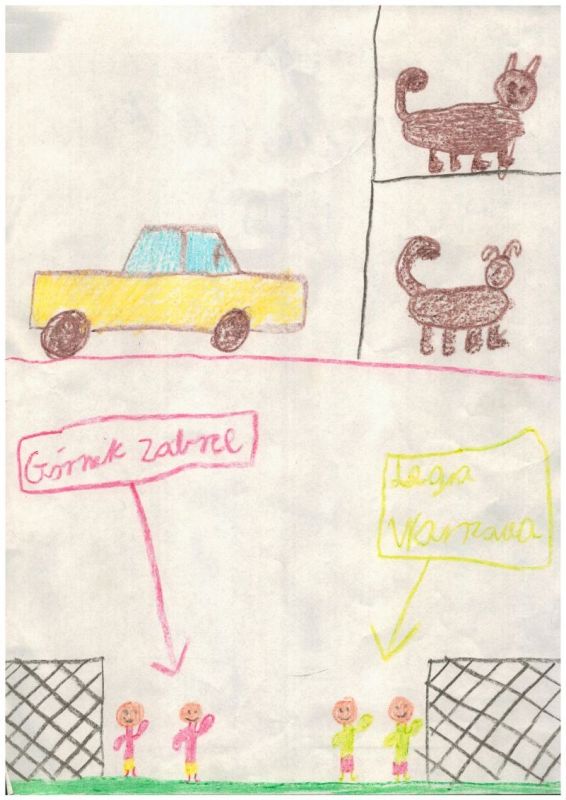 Górnik Zabrze
Legia
Warszawa